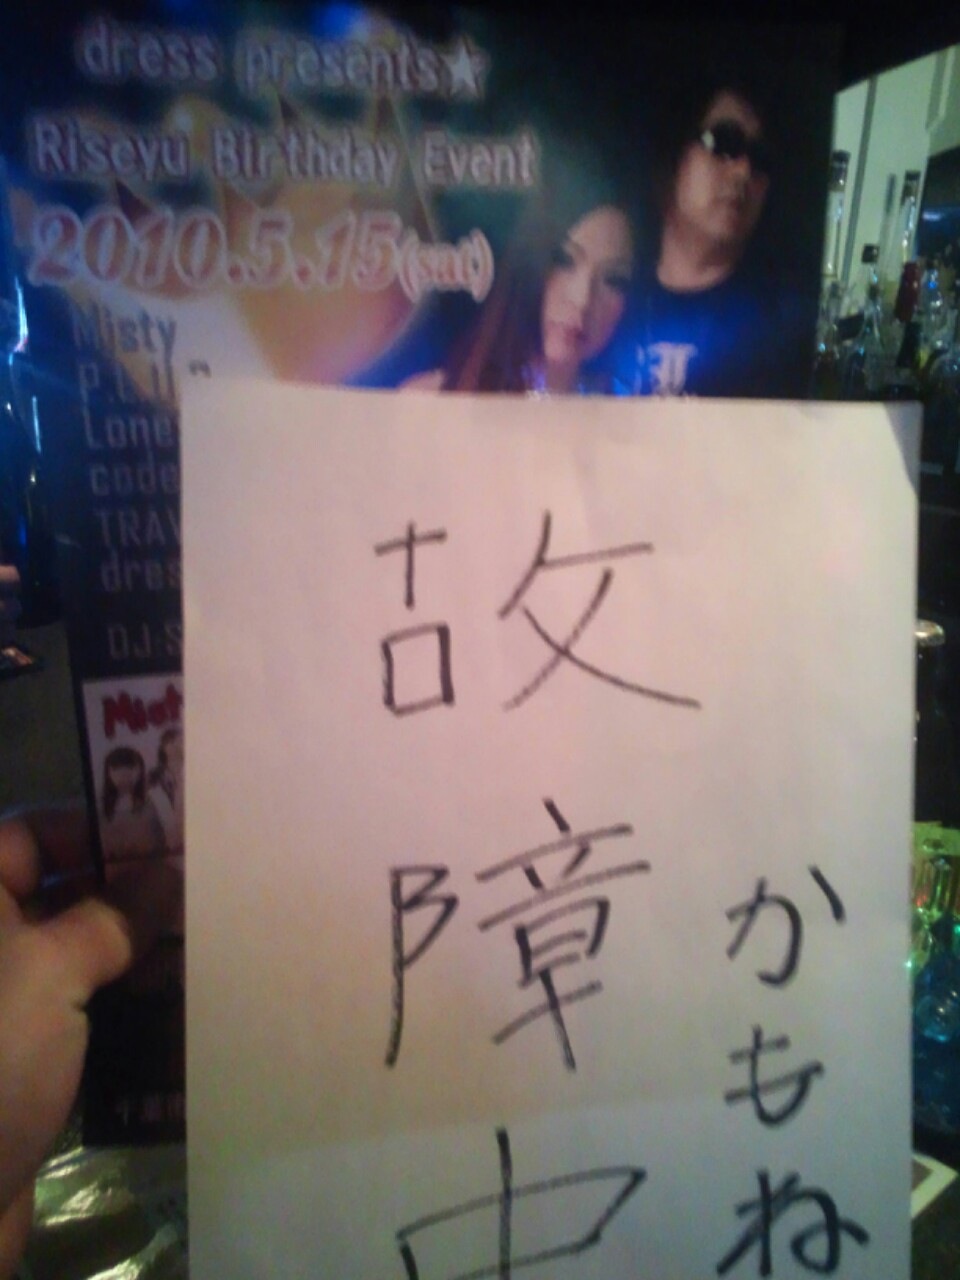 dress presents★
Riseyu Birthday Event
2010.5.15(sat)
Misty
Lone
code
TRAV
dres
DJ S
故障中
かもね